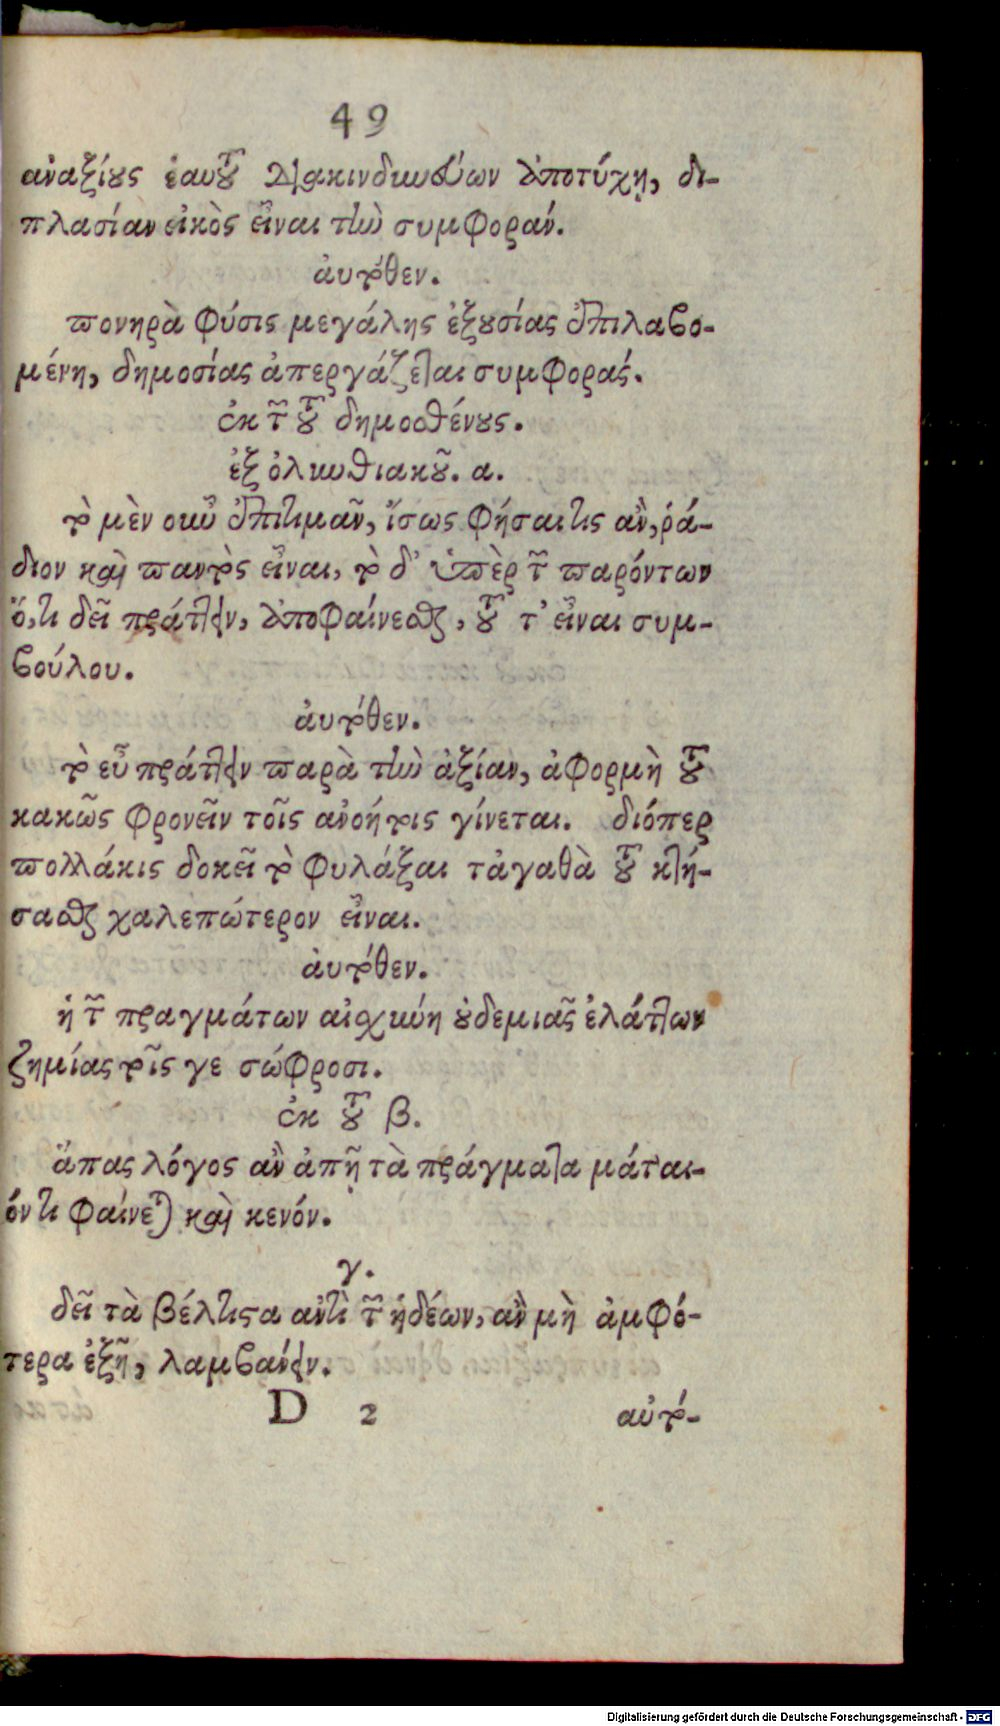 49
ἀναξίους ἑαυτοῦ διακινδυνεύων ἀποτύχῃ, δι-
πλασίαν εἰκὸς εἶναι τὴν συμφοράν.
αὐτόθεν.
πονηρὰ φύσις μεγάλης ἐξουσίας ἐπιλαβο-
μένη, δημοσίας ἀπεργάζεται συμφοράς.
ἐκ τῶν τοῦ δημοσθένους.
ἐξ ὀλυνθιακοῦ. α.
τὸ μὲν οὖν ἐπιτιμᾶν, ἴσως φήσαι τις ἂν, ῥά-
διον καὶ παντὸς εἶναι, τὸ δ' ὑπὲρ τῶν παρόντων
ὅ,τι δεῖ πράττειν, ἀποφαίνεσθαι, τοῦ τ' εἶναι συμ-
βούλου.
αὐτόθεν.
τὸ εὖ πράττειν παρὰ τὴν ἀξίαν, ἀφορμὴ τοῦ
κακῶς φρονεῖν τοῖς ἀνοήτοις γίνεται. διόπερ
πολλάκις δοκεῖ τὸ φυλάξαι τἀγαθὰ τοῦ κτή-
σασθαι χαλεπώτερον εἶναι.
αὐτόθεν.
ἡ τῶν πραγμάτων αἰσχύνη οὐδεμιᾶς ἐλάττων
ζημίας τοῖς γε σώφροσι.
ἐκ τοῦ β.
ἅπας λόγος ἂν ἀπῇ τὰ πράγματα μάται-
όν τι φαίνεται καὶ κενόν.
γ.
δεῖ τὰ βέλτιστα ἀντὶ τῶν ἡδέων, ἂν μὴ ἀμφό-
τερα ἐξῇ, λαμβάνειν.
D 2 αὐτό-
Digitalisierung gefördert durch die Deutsche Forschungsgemeinschaft - DFG